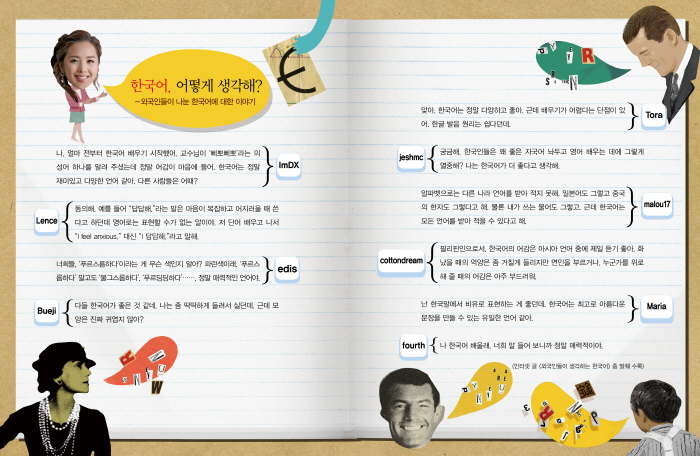 한국어, 어떻게 생각해?
– 외국인들이 나눈 한국어에 대한 이야기
나, 얼마 전부터 한국어 배우기 시작했어. 교수님이 '삐뽀삐뽀'라는 의
성어 하나를 알려 주셨는데 정말 어감이 마음에 들어. 한국어는 정말
재미있고 다양한 언어 같아. 다른 사람들은 어때?
ImDX
Lence
동의해. 예를 들어 "답답해."라는 말은 마음이 복잡하고 어지러울 때 쓴
다고 하던데 영어로는 표현할 수가 없는 말이야. 저 단어 배우고 나서
"I feel anxious." 대신 "I 답답해."라고 말해.
너희들, '푸르스름하다'이라는 게 무슨 색인지 알아? 파란색이래. '푸르스
름하다' 말고도 '불그스름하다', '푸르딩딩하다'……. 정말 매력적인 언어야.
edis
Bueji
다들 한국어가 좋은 것 같네. 나는 좀 딱딱하게 들려서 싫던데. 근데 모
양은 진짜 귀엽지 않아?
맞아. 한국어는 정말 다양하고 좋아. 근데 배우기가 어렵다는 단점이 있
어. 한글 발음 원리는 쉽다던데.
Tora
jeshmc
궁금해. 한국인들은 왜 좋은 자국어 놔두고 영어 배우는 데에 그렇게
열중해? 나는 한국어가 더 좋다고 생각해.
알파벳으로는 다른 나라 언어를 받아 적지 못해. 일본어도 그렇고 중국
의 한자도 그렇다고 해. 물론 내가 쓰는 불어도 그렇고. 근데 한국어는
모든 언어를 받아 적을 수 있다고 해.
malou17
cottondream
필리핀인으로서, 한국어의 어감은 아시아 언어 중에 제일 듣기 좋아. 화
났을 때의 억양은 좀 거칠게 들리지만 연인을 부르거나, 누군가를 위로
해 줄 때의 어감은 아주 부드러워.
난 한국말에서 비유로 표현하는 게 좋던데. 한국어는 최고로 아름다운
문장을 만들 수 있는 유일한 언어 같아.
Maria
fourth
나 한국어 배울래. 너희 말 들어 보니까 정말 매력적이야.
(인터넷 글 〈외국인들이 생각하는 한국어〉 중 발췌 수록)